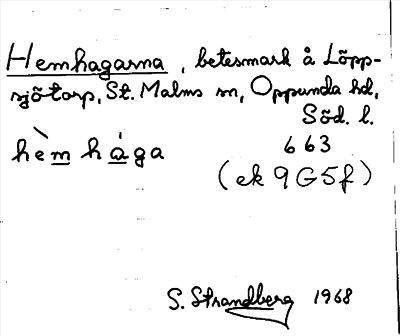 Hemhagarna, betesmark å Löpp-
sjötorp, St. Malms sn, Oppunda hd,
Söd. l.
hèm hága
663
(ek 9G5f)
S. Strandberg 1968